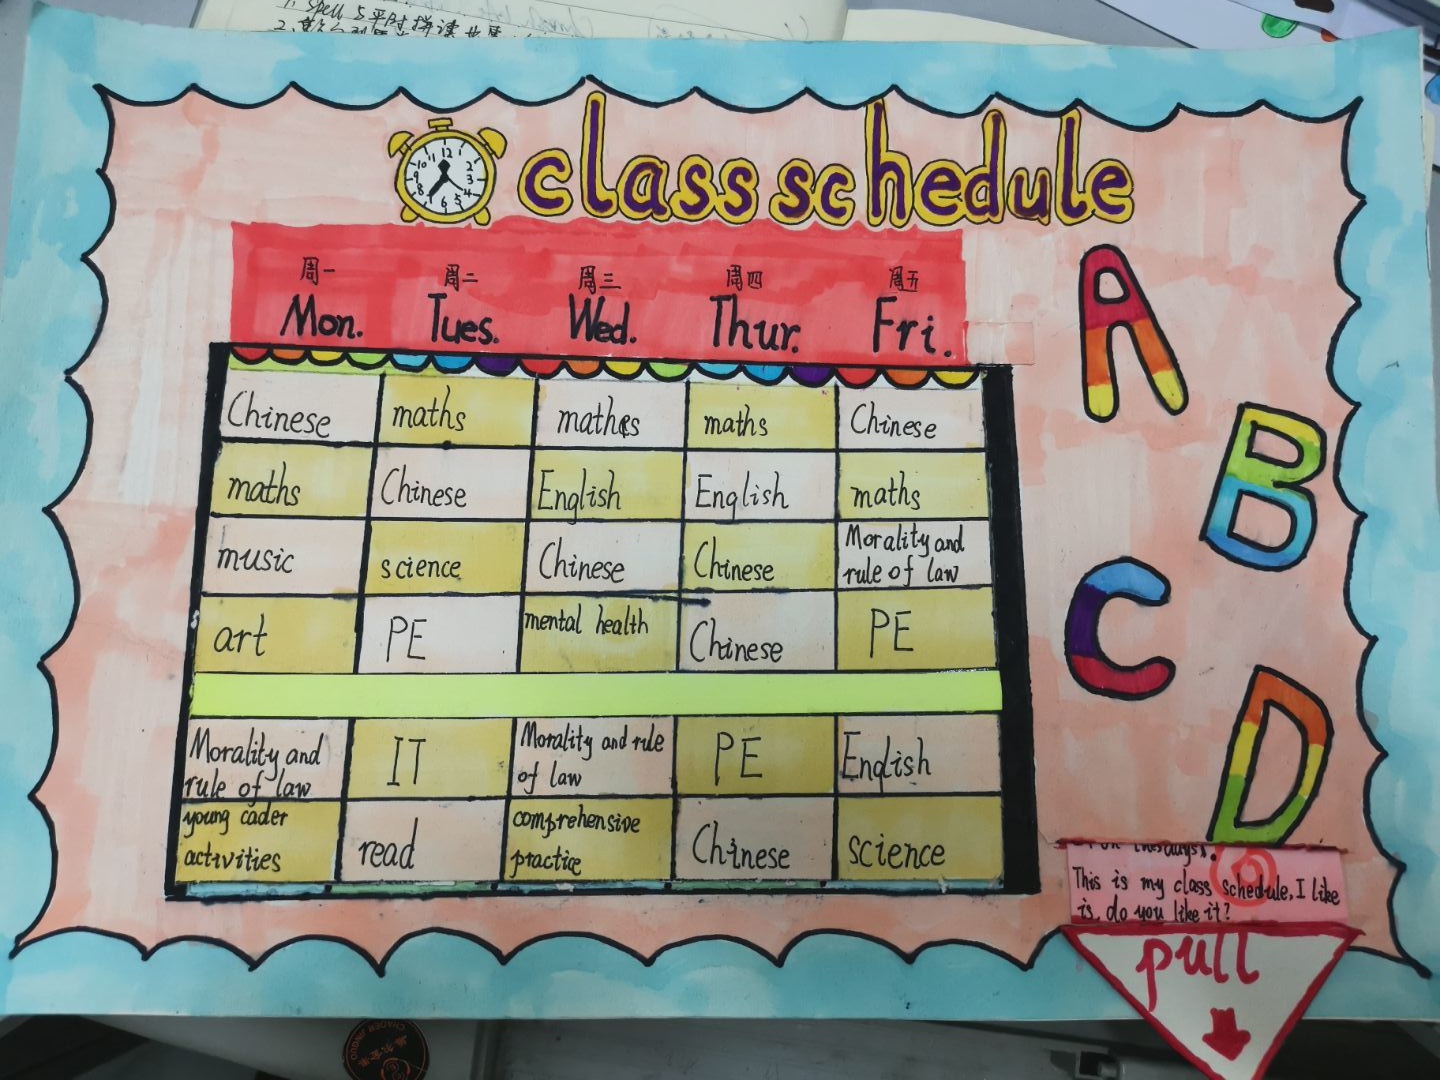 1. Spell
class schedule
周一 周二 周三 周四 周五
Mon. Tues. Wed. Thur. Fri.
Chinese maths mathes maths Chinese
maths Chinese English English maths
music science Chinese Chinese Morality and
rule of law
art PE mental health Chinese PE
Morality and
rule of law IT Morality and rule
of law PE English
young cader
activities read comprehensive
practice Chinese science
A
B
C
D
This is my class schedule, I like
is, do you like it?
pull
12 1 2 3 4 5 6 7 8 9 10 11